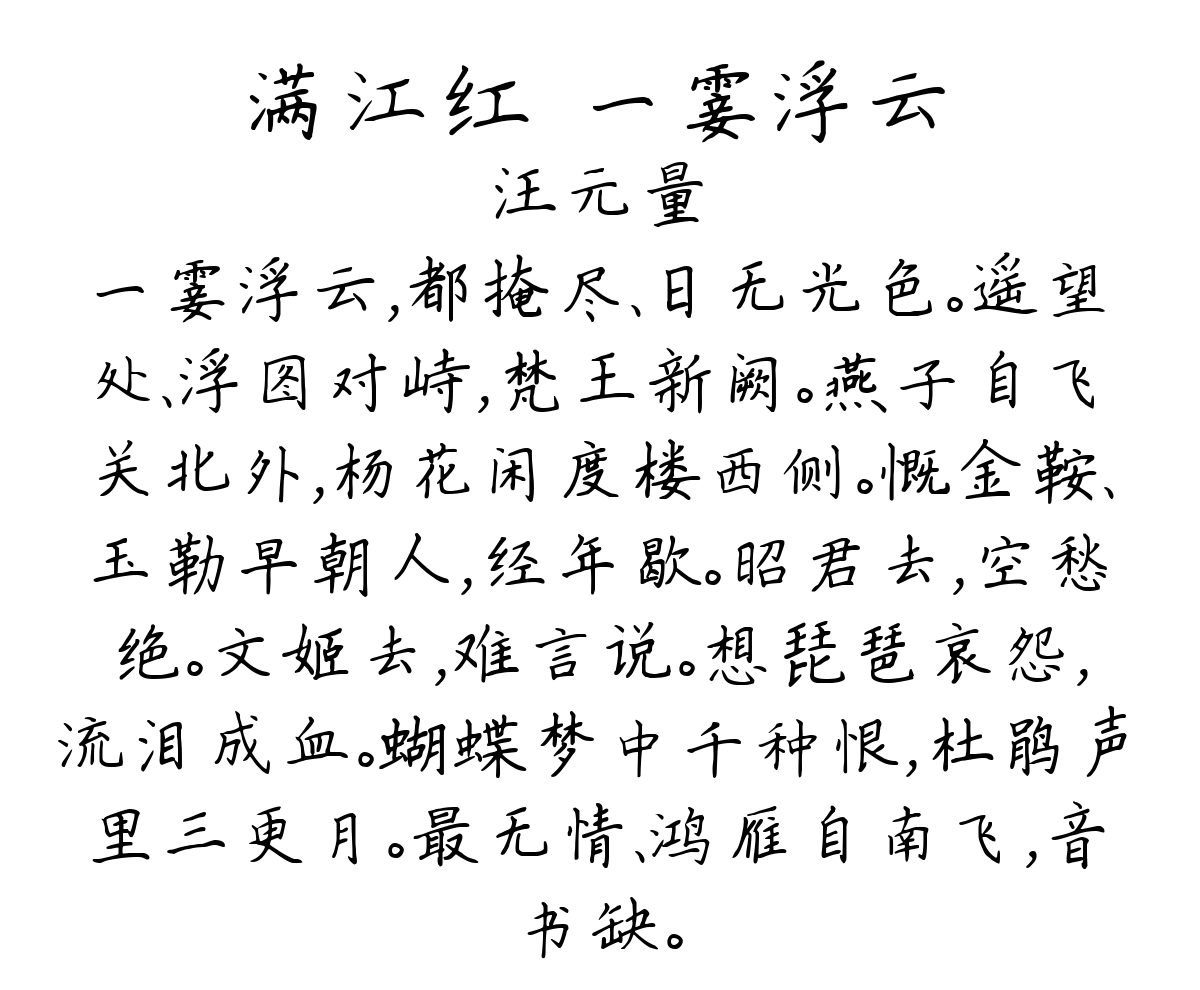 满江红 一霎浮云
汪元量
一霎浮云,都掩尽、日无光色。遥望
处、浮图对峙,梵王新阙。燕子自飞
关北外,杨花闲度楼西侧。慨金鞍、
玉勒早朝人,经年歇。昭君去,空愁
绝。文姬去,难言说。想琵琶哀怨,
流泪成血。蝴蝶梦中千种恨,杜鹃声
里三更月。最无情、鸿雁自南飞,音
书缺。